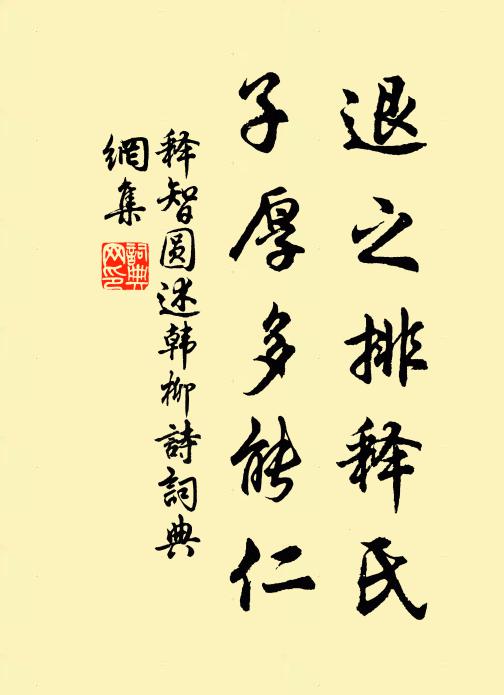 退之排释氏
子厚多能仁
释智圆述韩柳詩詞典
網集
詞典
网印